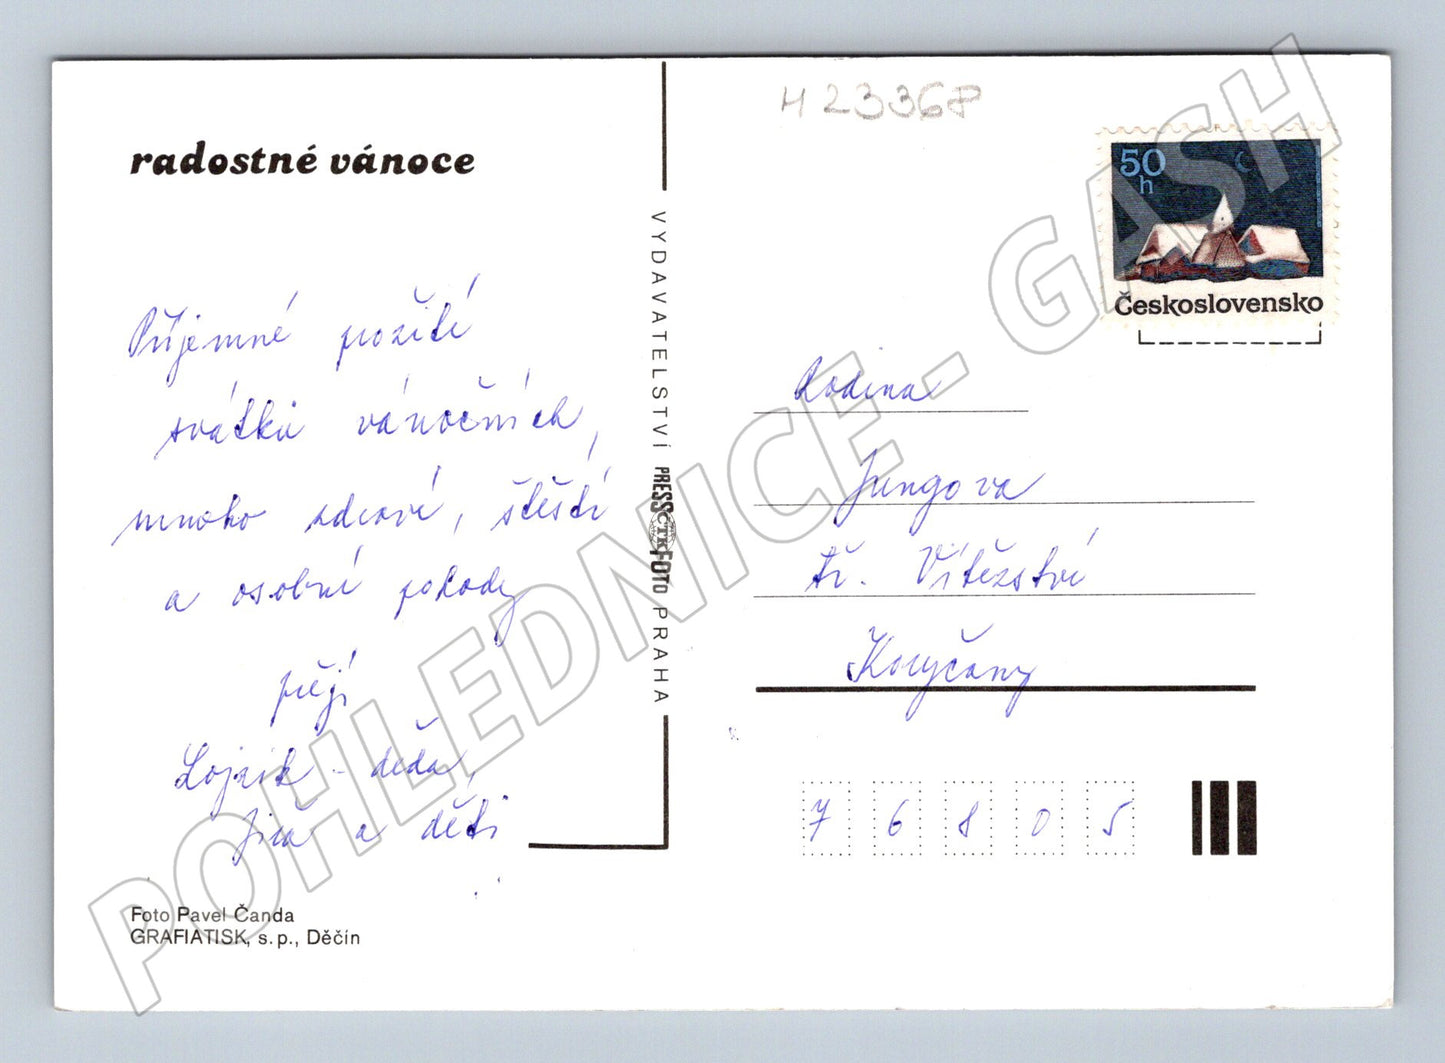 radostné vánoce
Příjemné prožití
svátků vánočních,
mnoho zdraví, štěstí
a osobní pohody
přejí
Lojzik - děda,
Jiřa a děti
Foto Pavel Čanda
GRAFIATISK, s.p., Děčín
VYDAVATELSTVÍ PRESSFOTO PRAHA
ČTK
H 2336P
50
h
Československo
Rodina
Jungova
tř. Vítězství
Koryčany
7 6 8 0 5
POHLEDNICE - GASH